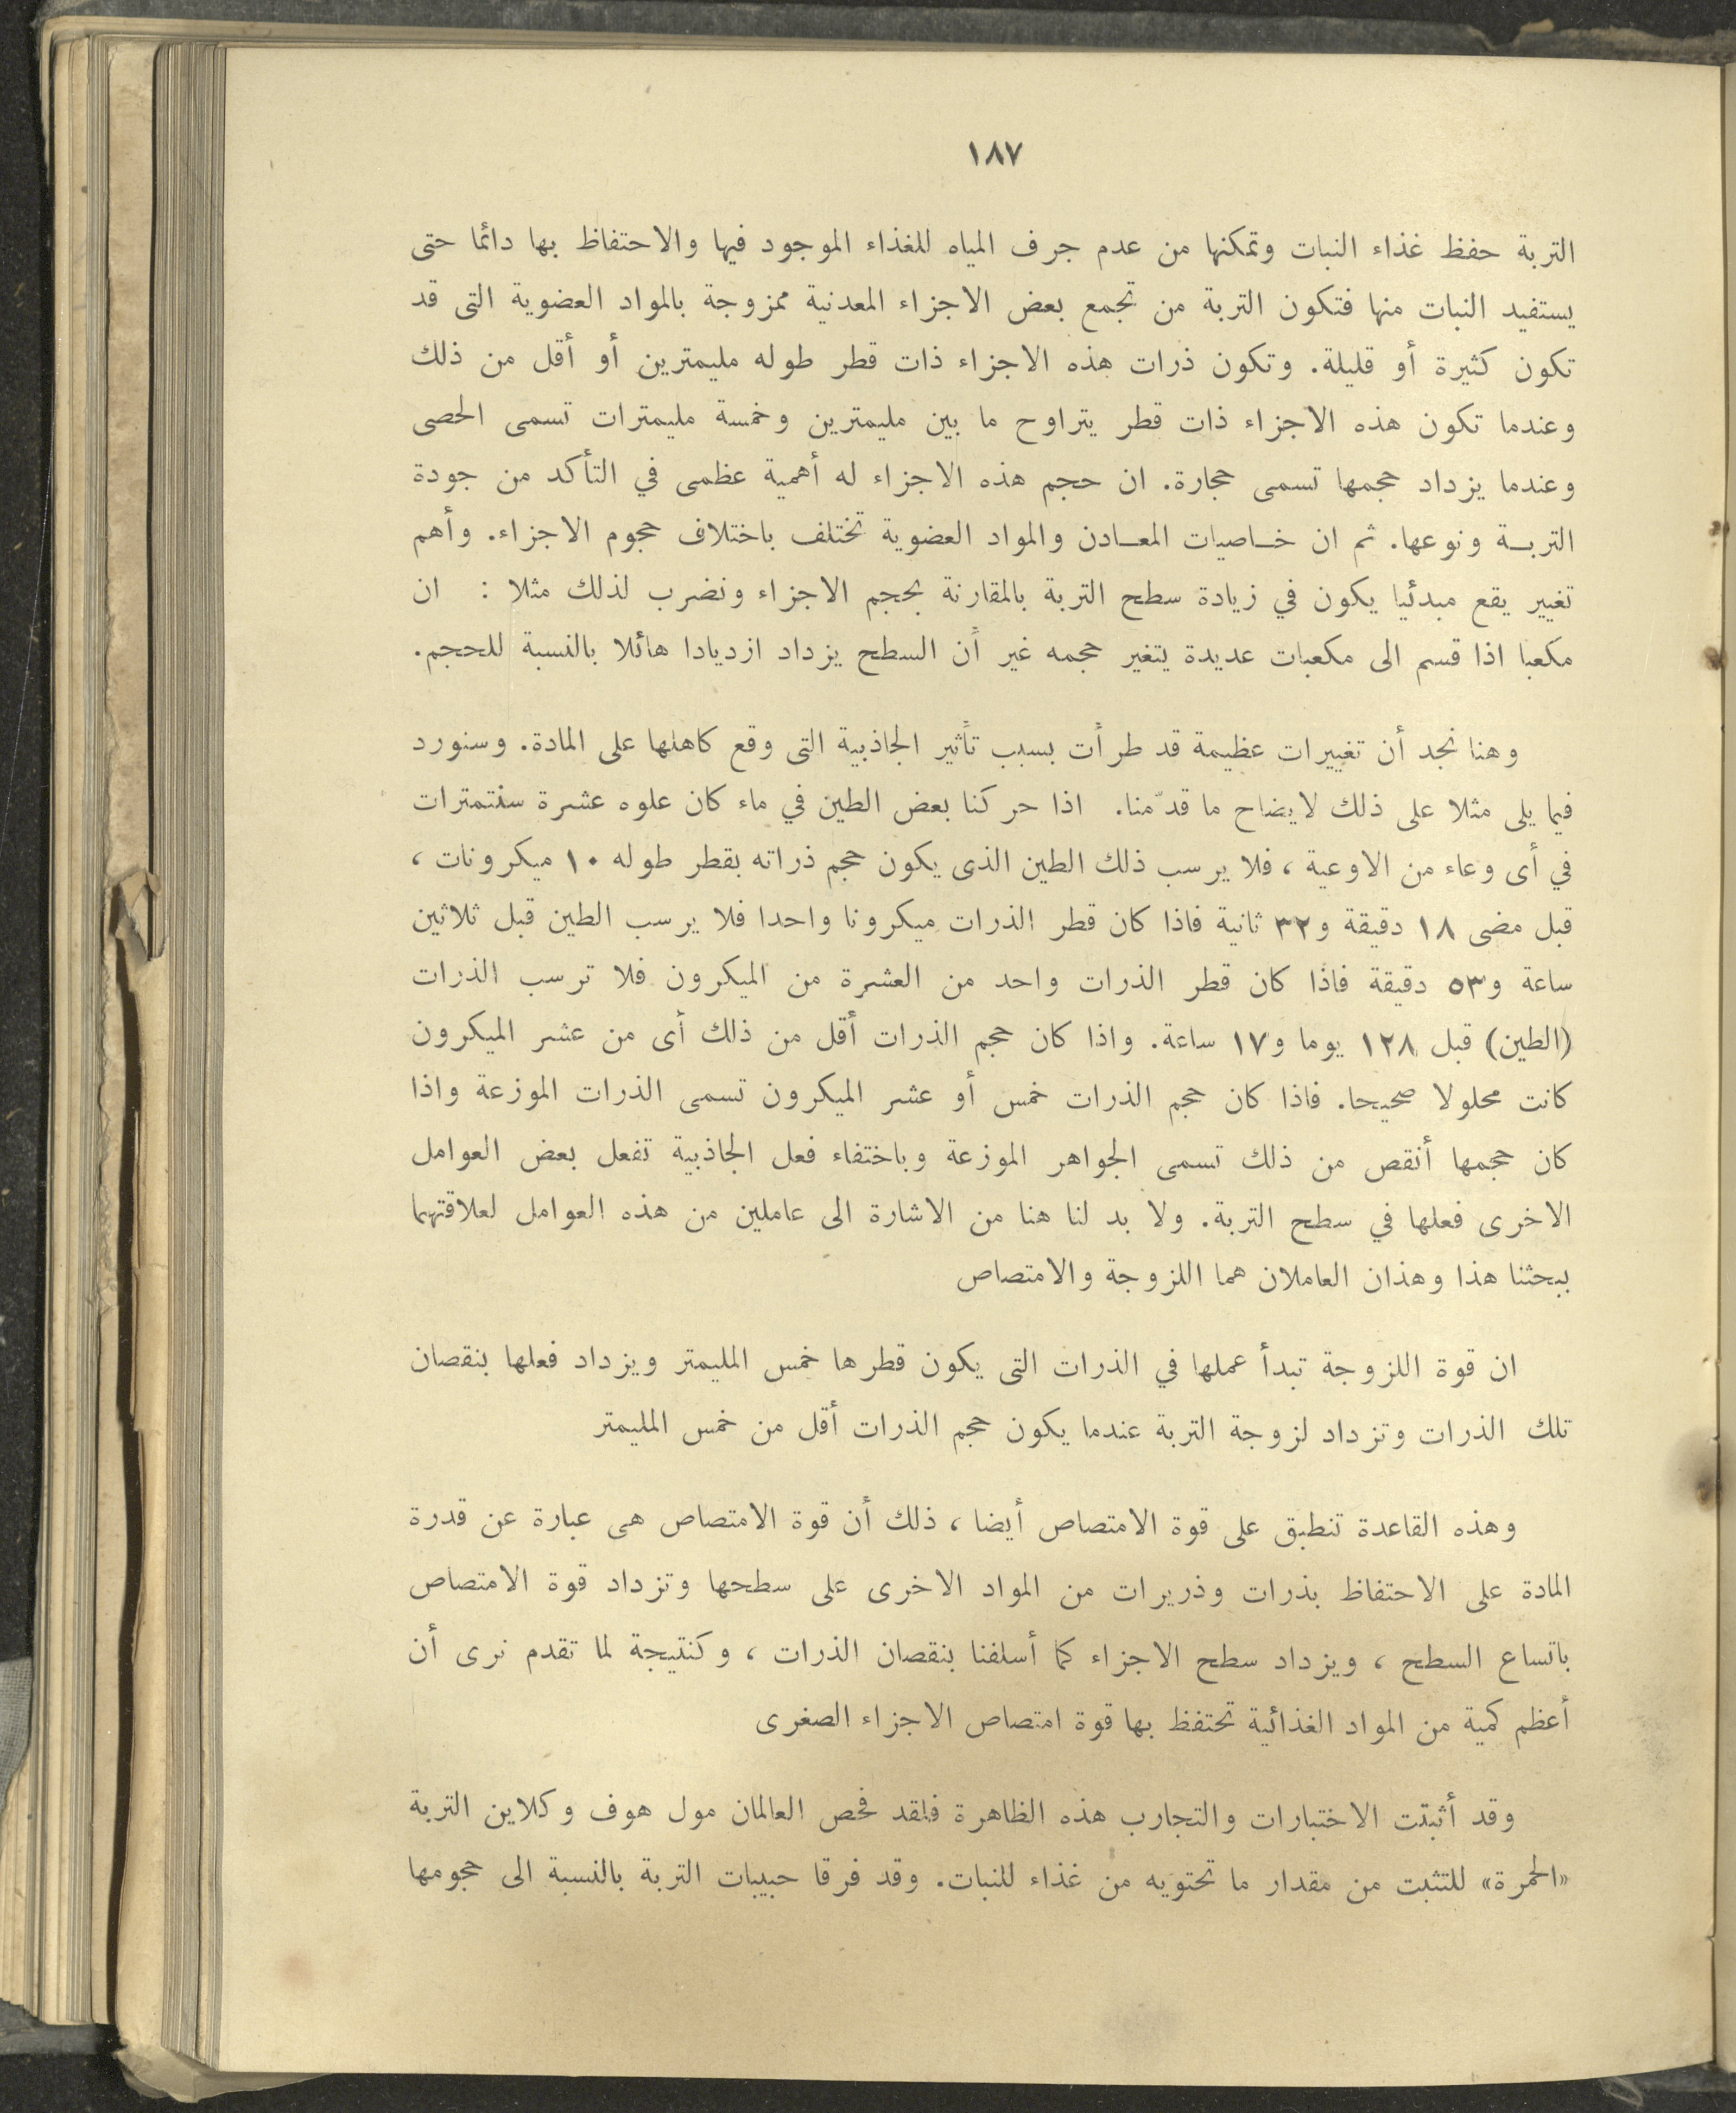 ١٨٧
التربة حفظ غذاء النبات وتمكنها من عدم جرف المياه للغذاء الموجود فيها والاحتفاظ بها دائما حتى
يستفيد النبات منها فتكون التربة من تجمع بعض الاجزاء المعدنية ممزوجة بالمواد العضوية التى قد
تكون كثيرة أو قليلة. وتكون ذرات هذه الاجزاء ذات قطر طوله مليمترين أو أقل من ذلك
وعندما تكون هذه الاجزاء ذات قطر يتراوح ما بين مليمترين وخمسة مليمترات تسمى الحصى
وعندما يزداد حجمها تسمى حجارة. ان حجم هذه الاجزاء له أهمية عظمى في التأكد من جودة
التربة ونوعها. ثم ان خاصيات المعادن والمواد العضوية تختلف باختلاف حجوم الاجزاء. وأهم
تغيير يقع مبدئيا يكون في زيادة سطح التربة بالمقارنة بحجم الاجزاء ونضرب لذلك مثلا : ان
مكعبا اذا قسم الى مكعبات عديدة يتغير حجمه غير أن السطح يزداد ازديادا هائلا بالنسبة للحجم.
وهنا نجد أن تغييرات عظيمة قد طرأت بسبب تأثير الجاذبية التى وقع كاهلها على المادة. وسنورد
فيما يلى مثلا على ذلك لايضاح ما قدّمنا. اذا حركنا بعض الطين في ماء كان علوه عشرة سنتمترات
في أى وعاء من الاوعية ، فلا يرسب ذلك الطين الذى يكون حجم ذراته بقطر طوله ١٠ ميكرونات ،
قبل مضى ١٨ دقيقة و٣٢ ثانية فاذا كان قطر الذرات ميكرونا واحدا فلا يرسب الطين قبل ثلاثين
ساعة و٥٣ دقيقة فاذا كان قطر الذرات واحد من العشرة من الميكرون فلا ترسب الذرات
(الطين) قبل ١٢٨ يوما و١٧ ساعة. واذا كان حجم الذرات أقل من ذلك أى من عشر الميكرون
كانت محلولا صحيحا. فاذا كان حجم الذرات خمس أو عشر الميكرون تسمى الذرات الموزعة واذا
كان حجمها أنقص من ذلك تسمى الجواهر الموزعة وباختفاء فعل الجاذبية تفعل بعض العوامل
الاخرى فعلها في سطح التربة. ولا بد لنا هنا من الاشارة الى عاملين من هذه العوامل لعلاقتهما
ببحثنا هذا وهذان العاملان هما اللزوجة والامتصاص
ان قوة اللزوجة تبدأ عملها في الذرات التى يكون قطرها خمس المليمتر ويزداد فعلها بنقصان
تلك الذرات وتزداد لزوجة التربة عندما يكون حجم الذرات أقل من خمس المليمتر
وهذه القاعدة تنطبق على قوة الامتصاص أيضا ، ذلك أن قوة الامتصاص هى عبارة عن قدرة
المادة على الاحتفاظ بذرات وذريرات من المواد الاخرى على سطحها وتزداد قوة الامتصاص
باتساع السطح ، ويزداد سطح الاجزاء كما أسلفنا بنقصان الذرات ، وكنتيجة لما تقدم نرى أن
أعظم كمية من المواد الغذائية تحتفظ بها قوة امتصاص الاجزاء الصغرى
وقد أثبتت الاختبارات والتجارب هذه الظاهرة فلقد فحص العالمان مول هوف وكلاين التربة
«الحمرة» للتثبت من مقدار ما تحتويه من غذاء للنبات. وقد فرقا حبيبات التربة بالنسبة الى حجومها